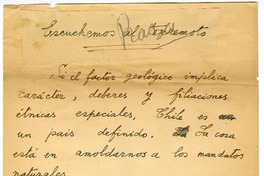 Escuchemos al terremoto
Si el factor geológico implica
carácter, deberes y filiaciones
étnicas especiales, Chile es
un país definido. La cosa
está en amoldarnos a los mandatos
naturales